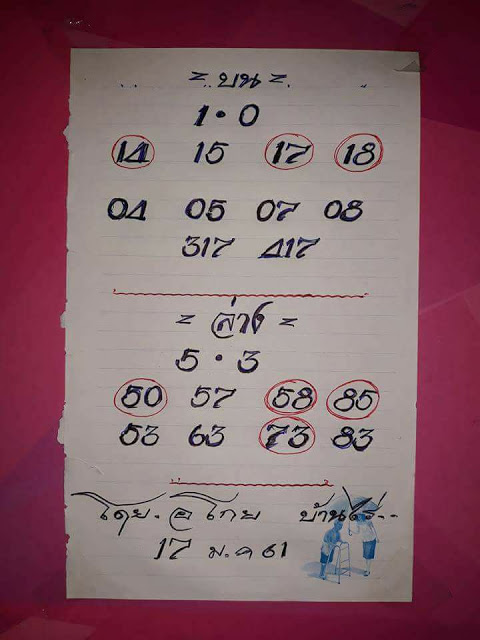 = บน =
1 • 0
14 15 17 18
04 05 07 08
317 417
= ล่าง =
5 • 3
50 57 58 85
53 63 73 83
โดย. อ โกย บ้านไร่..
17 ม.ค 61